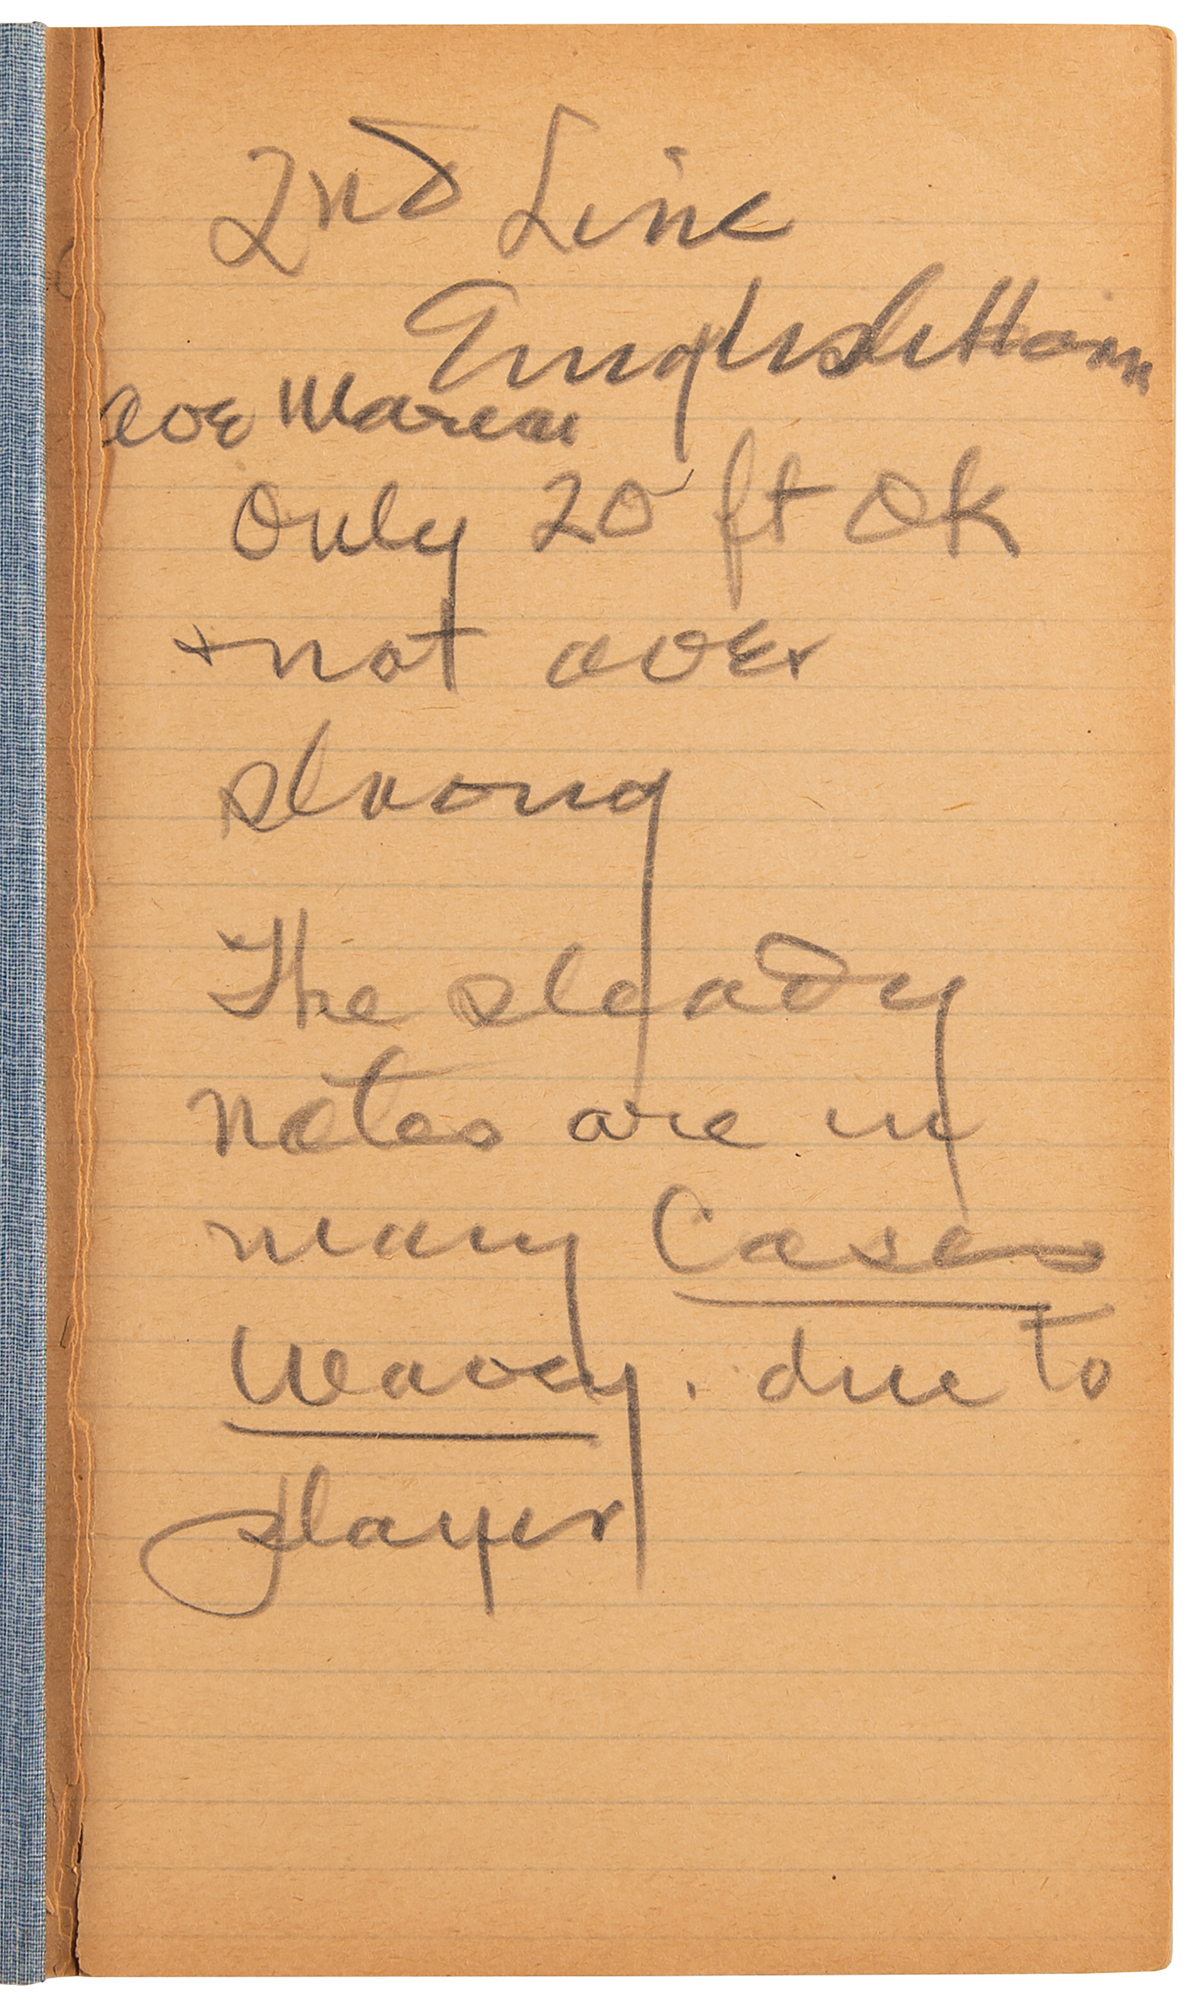 2nd Line
English Horn
Ave Maria
Only 20 ft OK
+ not over
strong
The steady
notes are in
many Cases
Wavey. due to
player